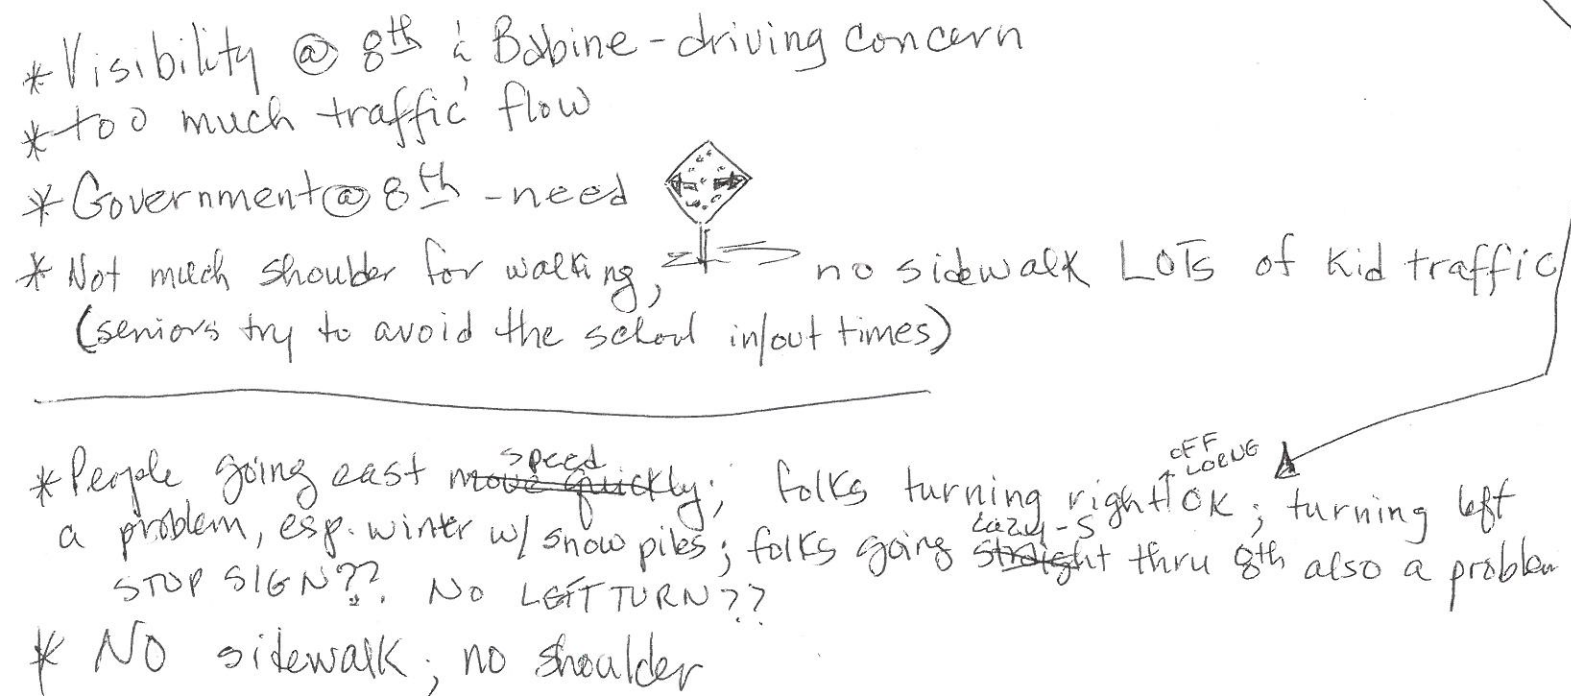 * Visibility @ 8th & Babine - driving concern
* too much traffic flow
* Government @ 8th - need
* Not much shoulder for walking, no sidewalk LOTS of kid traffic
(seniors try to avoid the school in/out times)
* People going east move quickly; speed folks turning right OK; off Lorne turning left
a problem, esp. winter w/ snow piles; folks going straight lazy-S thru 8th also a problem
STOP SIGN?? NO LEFT TURN??
* NO sidewalk; no shoulder